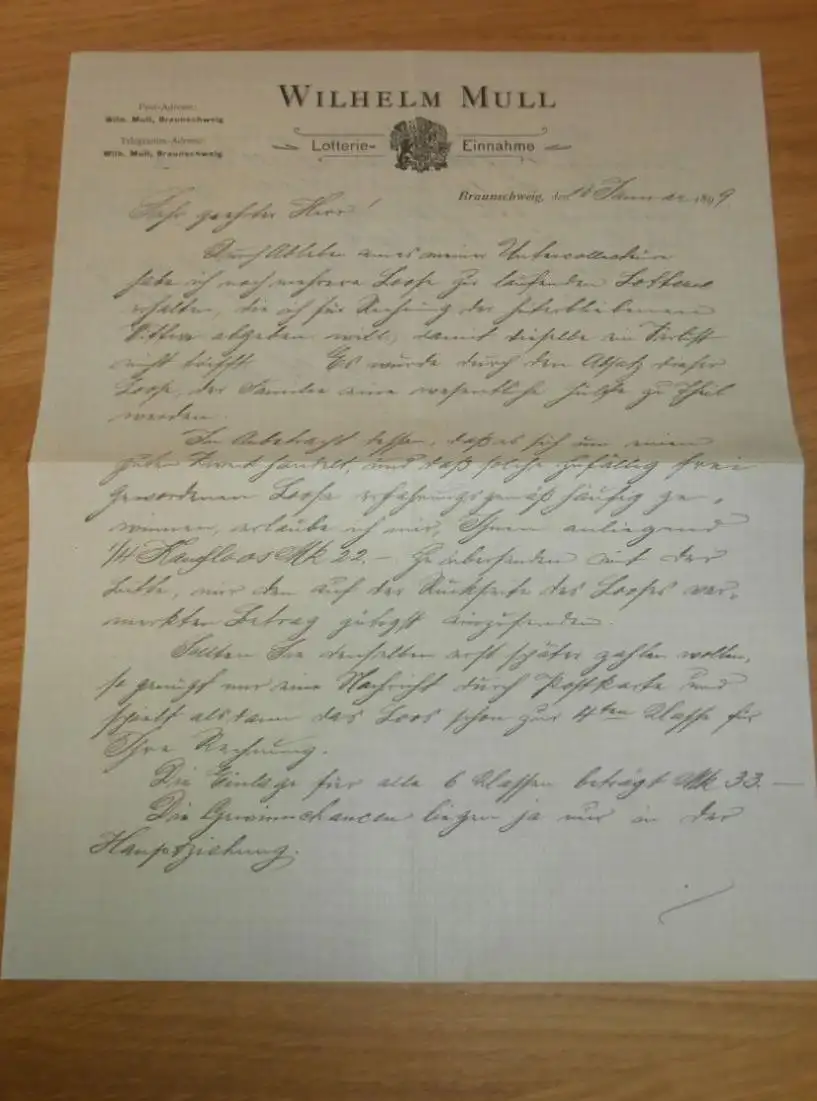 WILHELM MULL
Lotterie- Einnahme
Post-Adresse:
Wilh. Mull, Braunschweig
Telegramm-Adresse:
Wilh. Mull, Braunschweig
Braunschweig, den 16 Januar 1899
Sehr geehrter Herr!
Durch Ableben eines meiner Untercollecteure
habe ich noch mehrere Loose zur laufenden Lotterie
erhalten, die ich für Rechnung der hinterbliebenen
Wittwe abgeben will, damit dieselbe ein Verlust
nicht trifft. Es würde durch den Absatz dieser
Loose, der Familie eine wesentliche Hülfe zu Theil
werden.
In Anbetracht dessen, daß es sich um einen
guten Zweck handelt, und daß solche zufällig frei
gewordenen Loose erfahrungsgemäß häufig ge-
winnen, erlaube ich mir, Ihnen anliegend
1/4 Kaufloos Mk 22.- zu übersenden mit der
Bitte, mir den auf der Rückseite des Looses ver-
merkten Betrag gütigst einzusenden.
Sollten Sie denselben erst später zahlen wollen,
so genügt mir eine Nachricht durch Postkarte und
spielt alsdann das Loos schon zur 4ten Klasse für
Ihre Rechnung.
Die Einlage für alle 6 Klassen beträgt Mk 33.-
Die Gewinnchancen liegen ja nur in der
Hauptziehung.